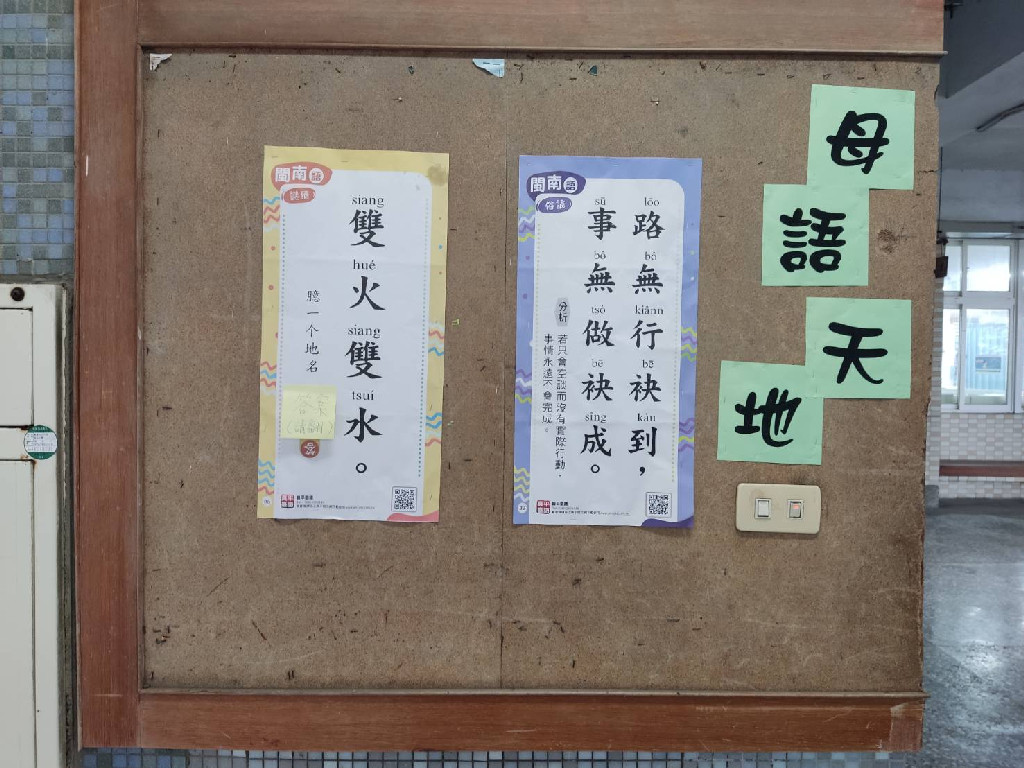 母語天地
閩南語
俗語
lōo bô kiânn bē kàu
路無行袂到，
sū bô tsò bē sîng
事無做袂成。
分析
若只會空談而沒有實際行動，
事情永遠不會完成。
閩南語
謎猜
siang hué siang tsuí
雙火雙水。
臆一个地名